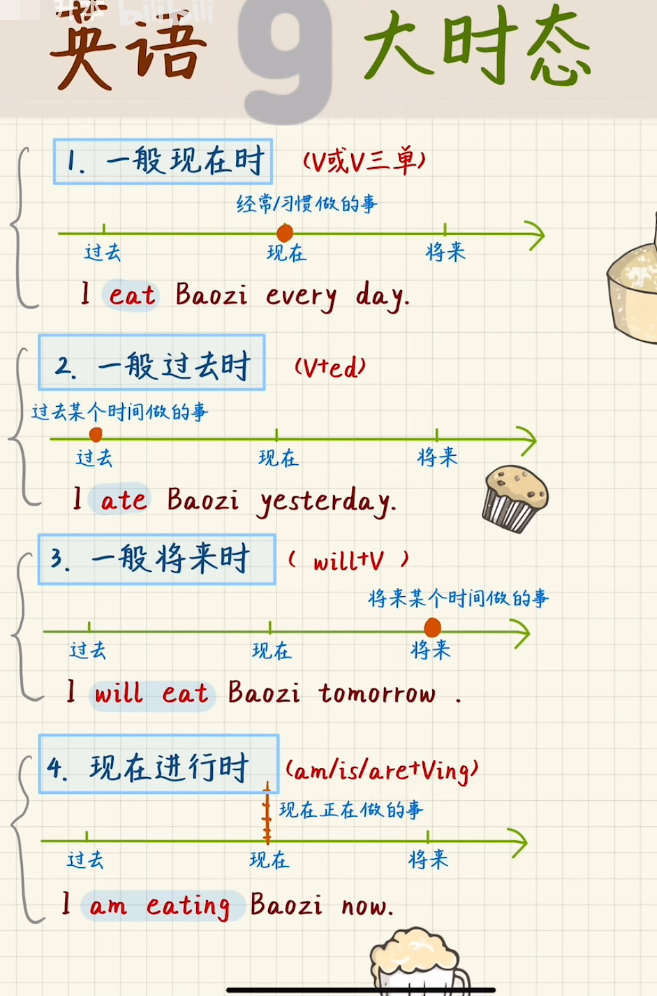 bilibili
英语 9 大时态
1. 一般现在时 (V或V三单)
经常/习惯做的事
过去 现在 将来
I eat Baozi every day.
2. 一般过去时 (V+ed)
过去某个时间做的事
过去 现在 将来
I ate Baozi yesterday.
3. 一般将来时 ( will+V )
将来某个时间做的事
过去 现在 将来
I will eat Baozi tomorrow .
4. 现在进行时 (am/is/are+Ving)
现在正在做的事
过去 现在 将来
I am eating Baozi now.